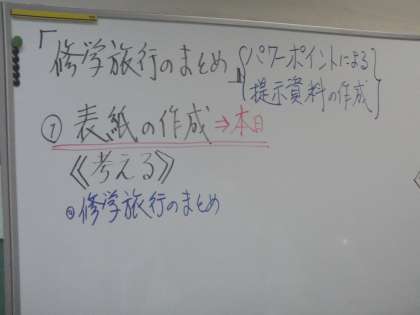 「修学旅行のまとめ」{パワーポイントによる
提示資料の作成}
① 表紙の作成→本日
《考える》
修学旅行のまとめ